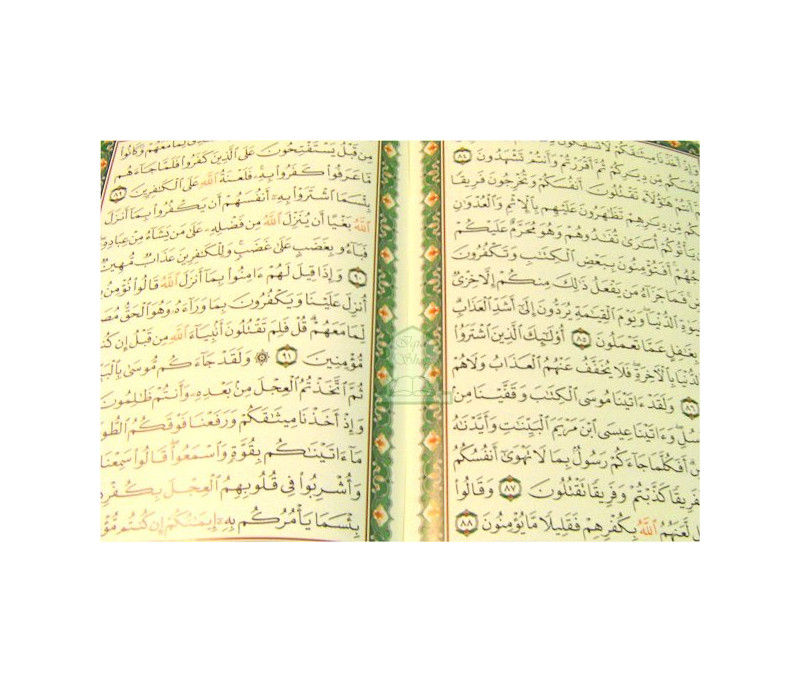 وَإِذْ أَخَذْنَا مِيثَٰقَكُمْ لَا تَسْفِكُونَ
أَنفُسَكُم مِّن دِيَٰرِكُمْ ثُمَّ أَقْرَرْتُمْ وَأَنتُمْ تَشْهَدُونَ ٨٤
ثُمَّ أَنتُمْ هَٰٓؤُلَآءِ تَقْتُلُونَ أَنفُسَكُمْ وَتُخْرِجُونَ فَرِيقًا
مِّن دِيَٰرِهِمْ تَظَٰهَرُونَ عَلَيْهِم بِٱلْإِثْمِ وَٱلْعُدْوَٰنِ
يَأْتُوكُمْ أُسَٰرَىٰ تُفَٰدُوهُمْ وَهُوَ مُحَرَّمٌ عَلَيْكُمْ
أَفَتُؤْمِنُونَ بِبَعْضِ ٱلْكِتَٰبِ وَتَكْفُرُونَ
فَمَا جَزَآءُ مَن يَفْعَلُ ذَٰلِكَ مِنكُمْ إِلَّا خِزْىٌ
ٱلدُّنْيَا وَيَوْمَ ٱلْقِيَٰمَةِ يُرَدُّونَ إِلَىٰٓ أَشَدِّ ٱلْعَذَابِ
بِغَٰفِلٍ عَمَّا تَعْمَلُونَ ٨٥ أُو۟لَٰٓئِكَ ٱلَّذِينَ ٱشْتَرَوُا۟
ٱلدُّنْيَا بِٱلْءَاخِرَةِ فَلَا يُخَفَّفُ عَنْهُمُ ٱلْعَذَابُ وَلَا هُمْ
٨٦ وَلَقَدْ ءَاتَيْنَا مُوسَى ٱلْكِتَٰبَ وَقَفَّيْنَا مِنۢ
وَءَاتَيْنَا عِيسَى ٱبْنَ مَرْيَمَ ٱلْبَيِّنَٰتِ وَأَيَّدْنَٰهُ
أَفَكُلَّمَا جَآءَكُمْ رَسُولٌۢ بِمَا لَا تَهْوَىٰٓ أَنفُسُكُمُ
فَفَرِيقًا كَذَّبْتُمْ وَفَرِيقًا تَقْتُلُونَ ٨٧ وَقَالُوا۟
لَّعَنَهُمُ ٱللَّهُ بِكُفْرِهِمْ فَقَلِيلًا مَّا يُؤْمِنُونَ ٨٨
لِّمَا مَعَهُمْ وَكَانُوا۟
مِن قَبْلُ يَسْتَفْتِحُونَ عَلَى ٱلَّذِينَ كَفَرُوا۟ فَلَمَّا جَآءَهُم
مَّا عَرَفُوا۟ كَفَرُوا۟ بِهِۦ فَلَعْنَةُ ٱللَّهِ عَلَى ٱلْكَٰفِرِينَ ٨٩
بِئْسَمَا ٱشْتَرَوْا۟ بِهِۦٓ أَنفُسَهُمْ أَن يَكْفُرُوا۟ بِمَآ أَنزَلَ
ٱللَّهُ بَغْيًا أَن يُنَزِّلَ ٱللَّهُ مِن فَضْلِهِۦ عَلَىٰ مَن يَشَآءُ مِنْ عِبَادِهِۦ
فَبَآءُو بِغَضَبٍ عَلَىٰ غَضَبٍ وَلِلْكَٰفِرِينَ عَذَابٌ مُّهِينٌ
٩٠ وَإِذَا قِيلَ لَهُمْ ءَامِنُوا۟ بِمَآ أَنزَلَ ٱللَّهُ قَالُوا۟ نُؤْمِنُ
أُنزِلَ عَلَيْنَا وَيَكْفُرُونَ بِمَا وَرَآءَهُۥ وَهُوَ ٱلْحَقُّ
لِّمَا مَعَهُمْ قُلْ فَلِمَ تَقْتُلُونَ أَنۢبِيَآءَ ٱللَّهِ مِن قَبْلُ إِن
مُّؤْمِنِينَ ٩١ ۞ وَلَقَدْ جَآءَكُم مُّوسَىٰ
ثُمَّ ٱتَّخَذْتُمُ ٱلْعِجْلَ مِنۢ بَعْدِهِۦ وَأَنتُمْ ظَٰلِمُونَ
وَإِذْ أَخَذْنَا مِيثَٰقَكُمْ وَرَفَعْنَا فَوْقَكُمُ
مَآ ءَاتَيْنَٰكُم بِقُوَّةٍ وَٱسْمَعُوا۟ قَالُوا۟ سَمِعْنَا
وَأُشْرِبُوا۟ فِى قُلُوبِهِمُ ٱلْعِجْلَ
بِئْسَمَا يَأْمُرُكُم بِهِۦٓ إِيمَٰنُكُمْ إِن كُنتُم